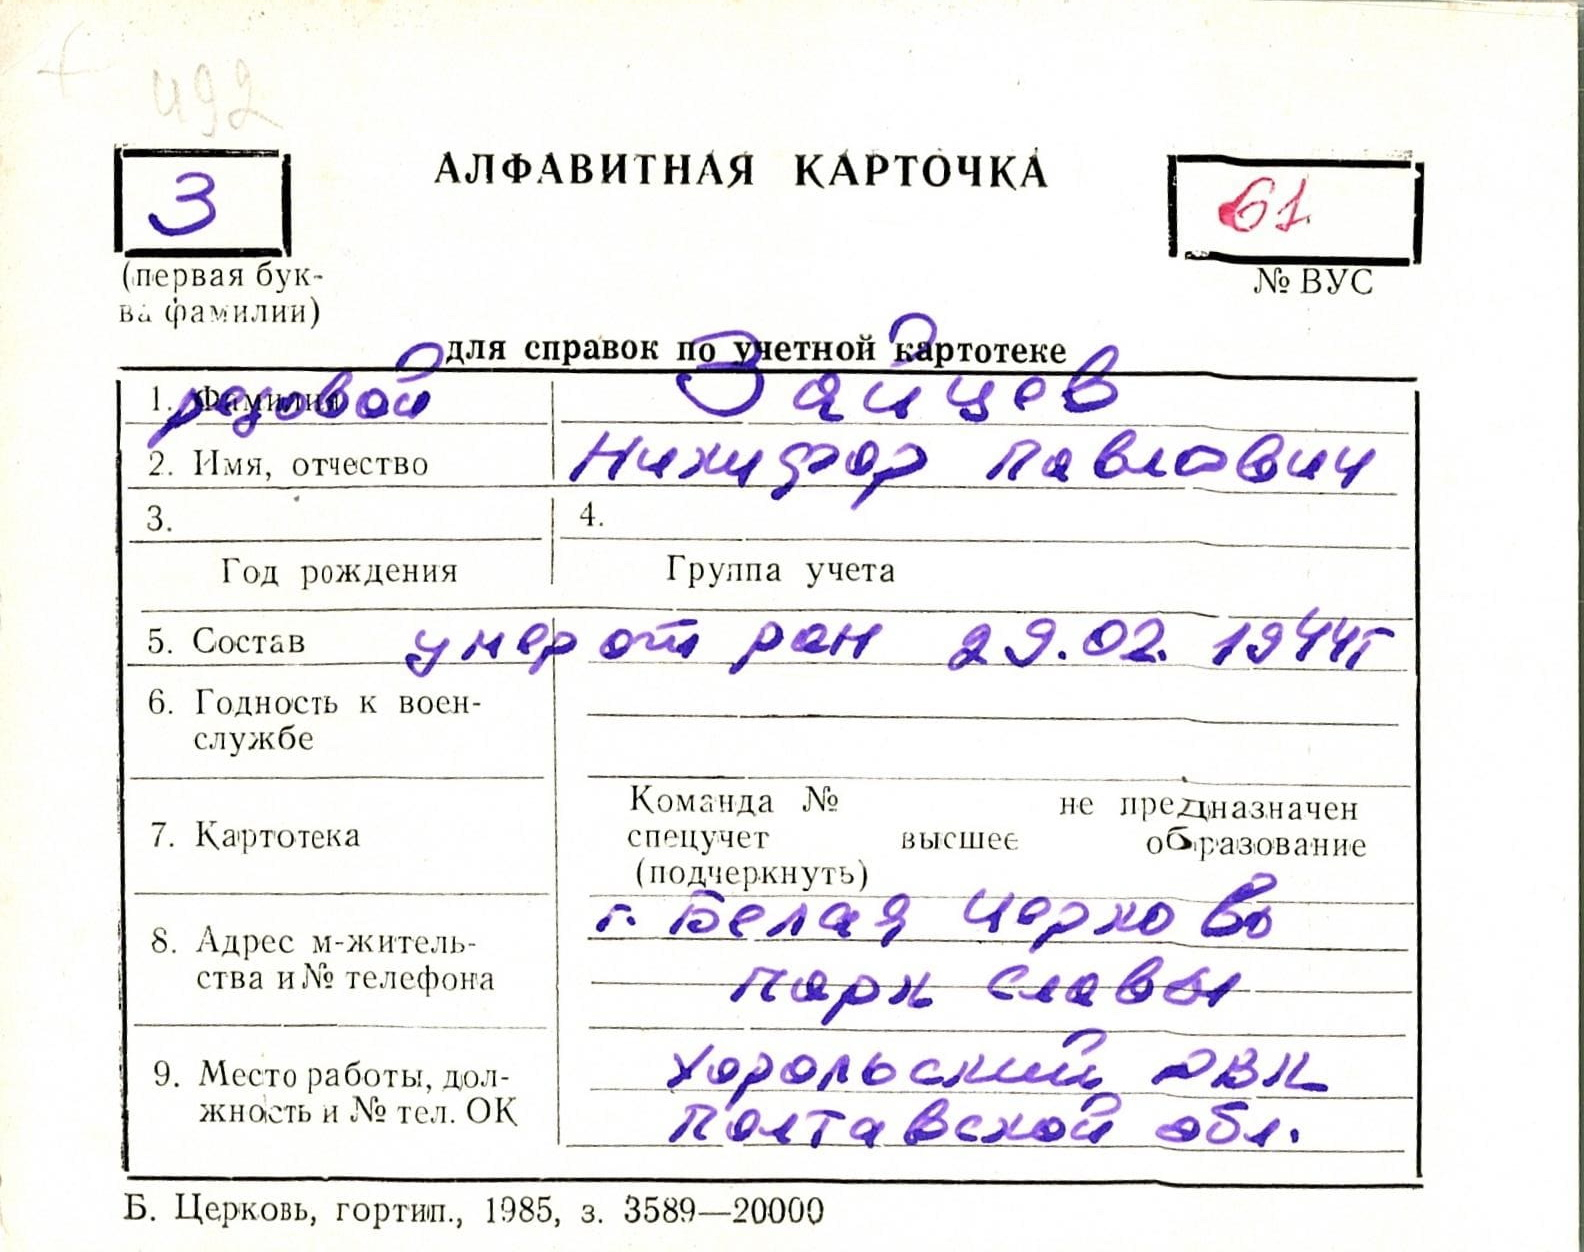 492
З
АЛФАВИТНАЯ КАРТОЧКА
61
(первая бук-
ва фамилии)
№ ВУС
для справок по учетной картотеке
1. Фамилия рядовой Зайцев
2. Имя, отчество Никифор Павлович
3. 4.
Год рождения Группа учета
5. Состав умер от ран 29.02.1944г
6. Годность к воен-
службе
Команда № не предназначен
7. Картотека спецучет высшее образование
(подчеркнуть)
г. Белая Церковь
8. Адрес м-житель-
ства и № телефона парк Славы
9. Место работы, дол- Хорольский РВК
жность и № тел. ОК Полтавской обл.
Б. Церковь, гортип., 1985, з. 3589—20000